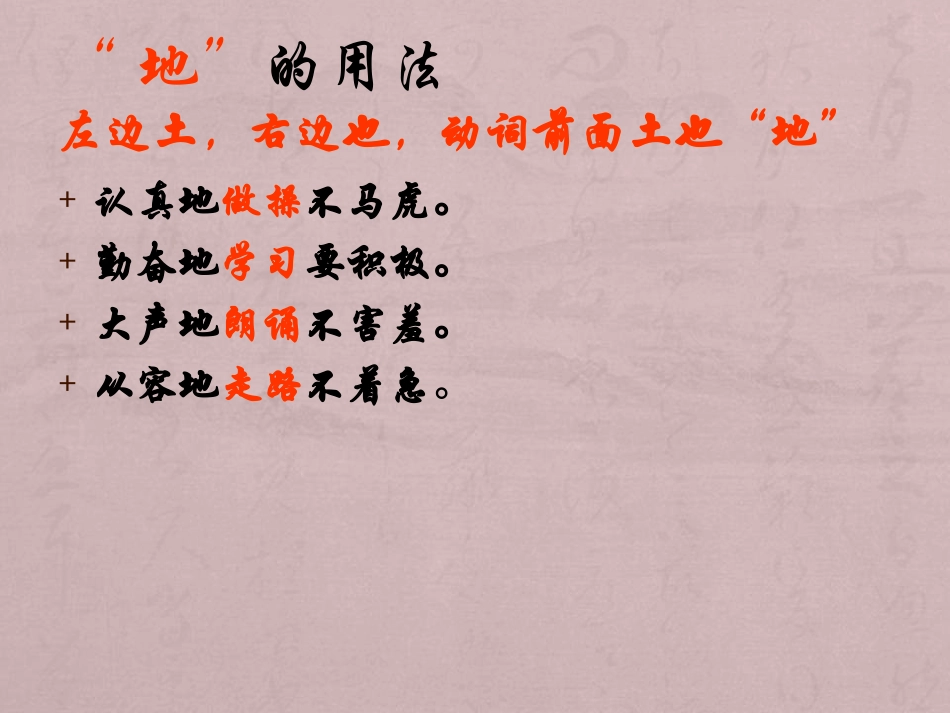 “地”的用法
左边土，右边也，动词前面土也“地”
+ 认真地做操不马虎。
+ 勤奋地学习要积极。
+ 大声地朗诵不害羞。
+ 从容地走路不着急。